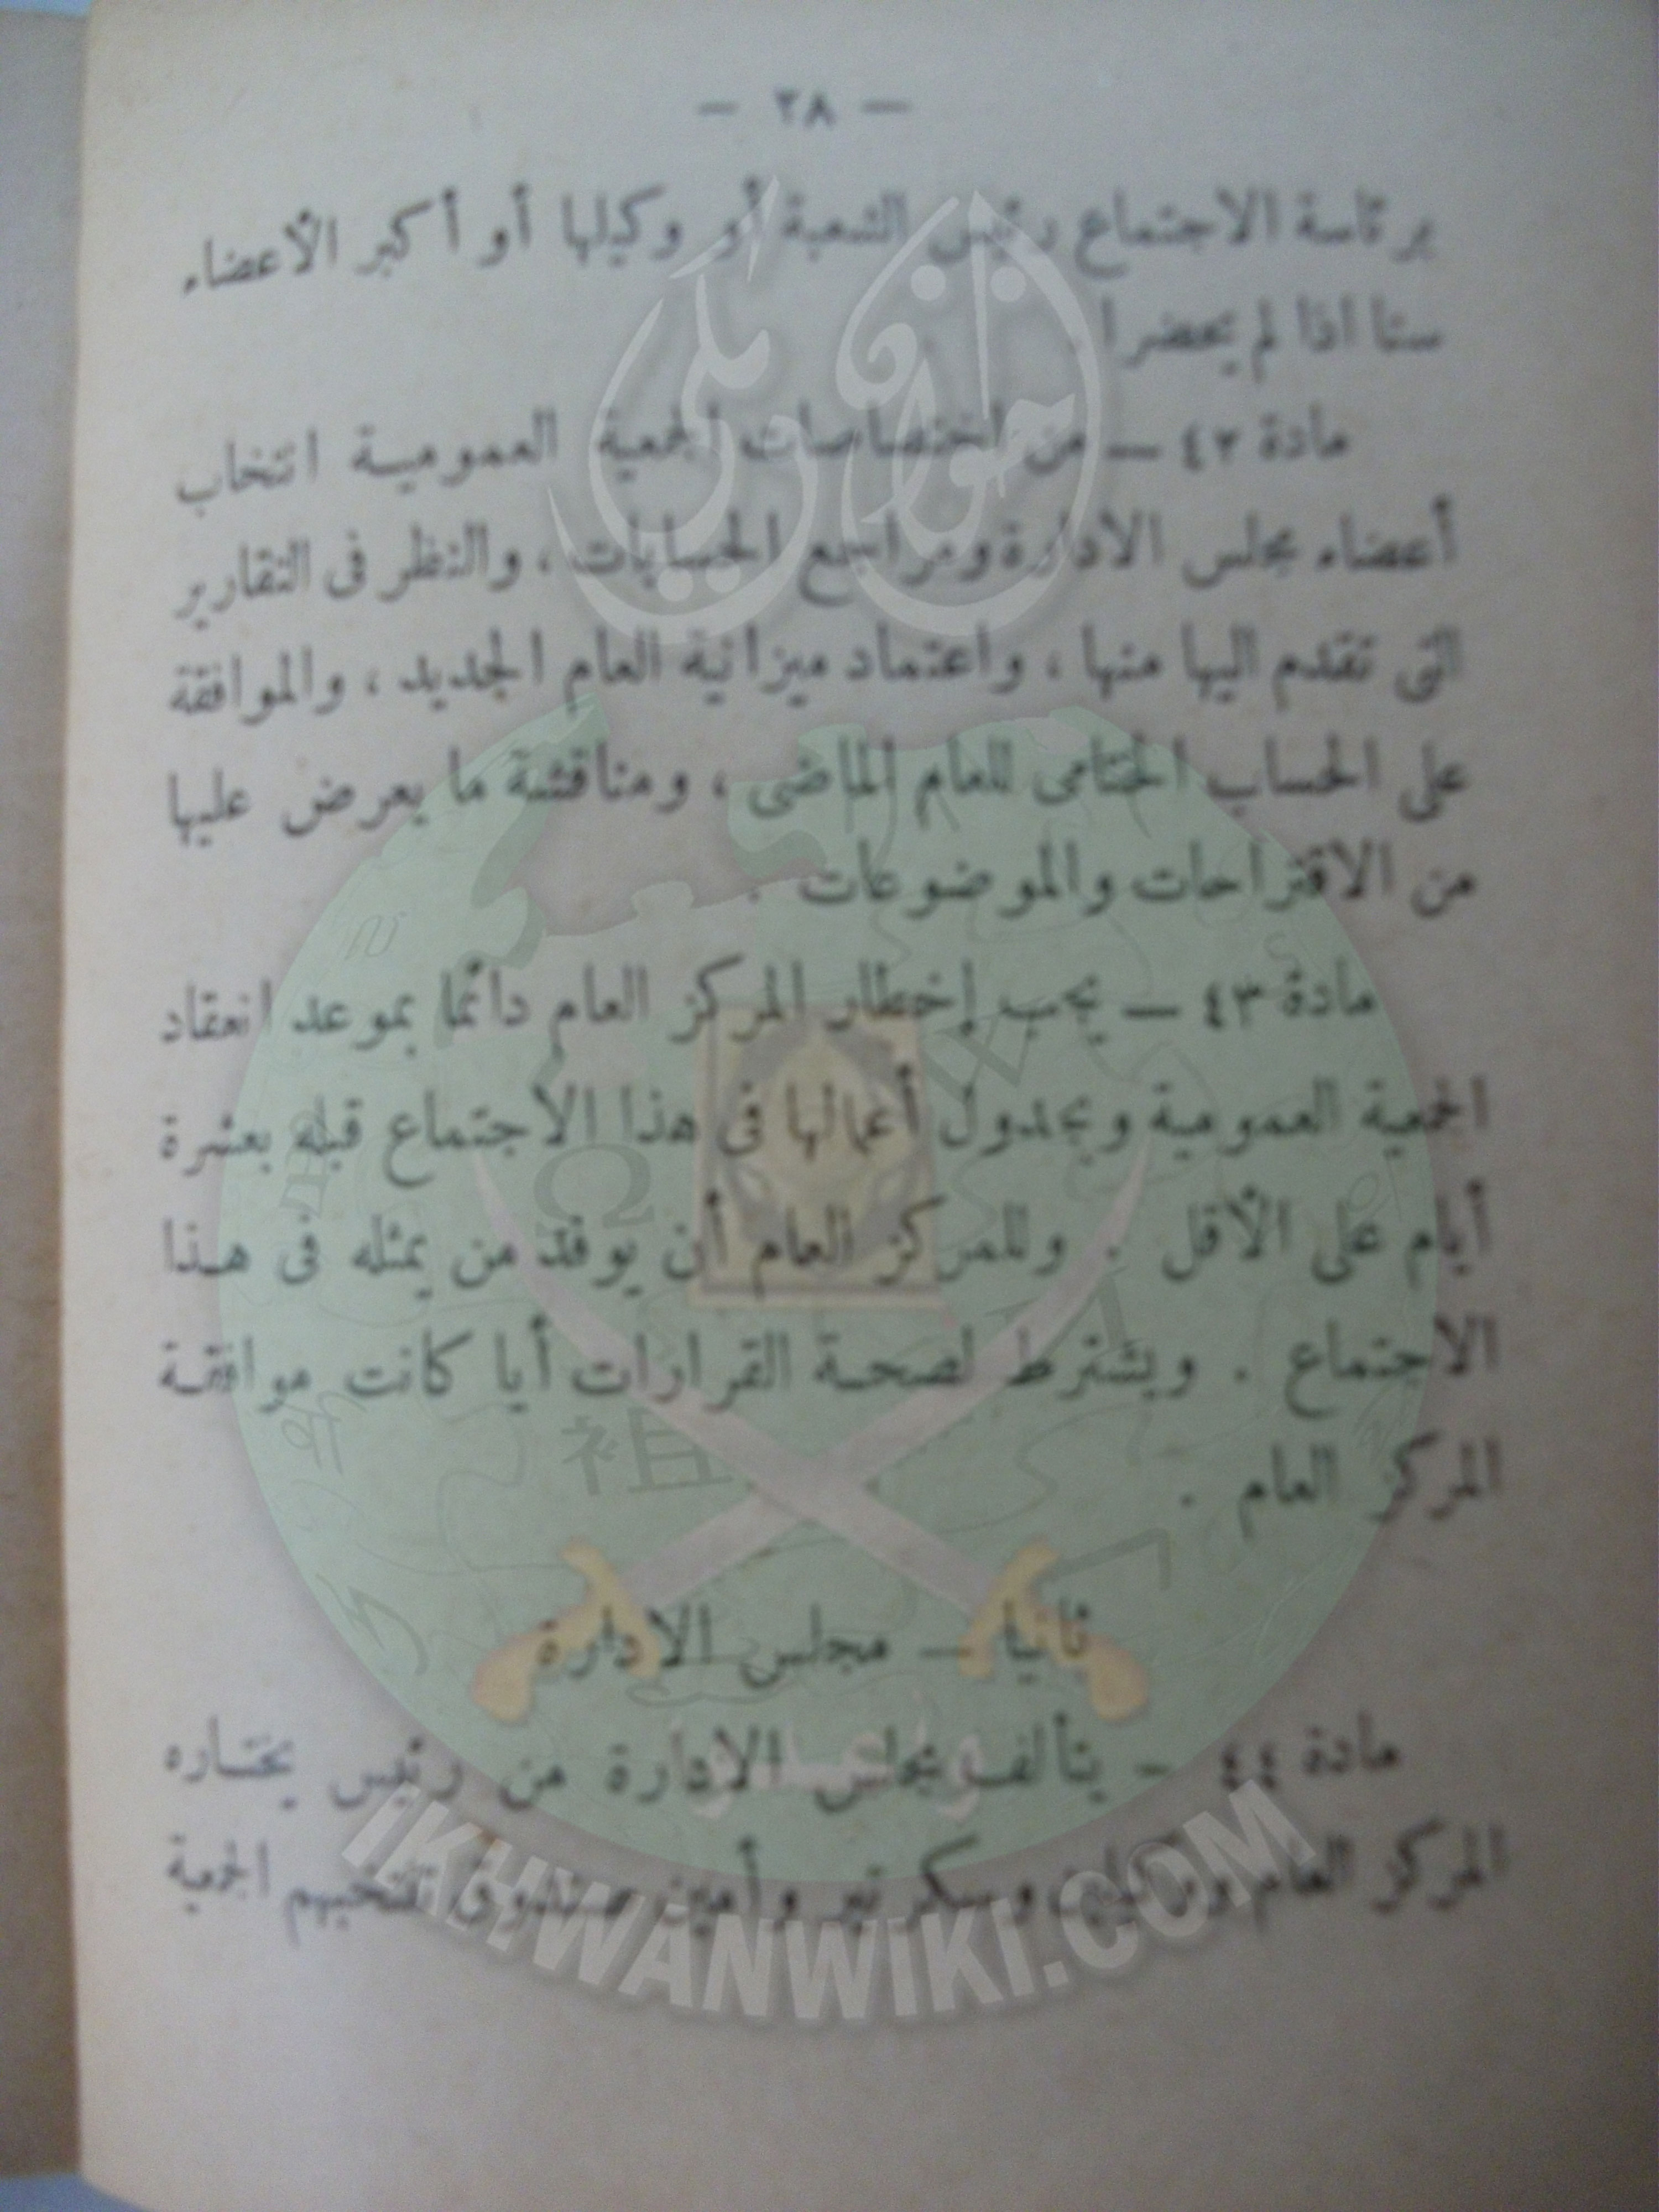 — ٢٨ —
برئاسة الاجتماع رئيس الشعبة أو وكيلها أو أكبر الأعضاء
سنا اذا لم يحضرا
مادة ٤٢ — من اختصاصات الجمعية العمومية انتخاب
أعضاء مجلس الادارة ومراجع الحسابات ، والنظر فى التقارير
التى تقدم اليها منها ، واعتماد ميزانية العام الجديد ، والموافقة
على الحساب الختامى للعام الماضى ، ومناقشة ما يعرض عليها
من الاقتراحات والموضوعات .
مادة ٤٣ — يجب إخطار المركز العام دائما بموعد انعقاد
الجمعية العمومية وبجدول أعمالها فى هذا الاجتماع قبله بعشرة
أيام على الأقل . وللمركز العام أن يوفد من يمثله فى هذا
الاجتماع . ويشترط لصحة القرارات أيا كانت موافقة
المركز العام .
ثانيا — مجلس الادارة
مادة ٤٤ — يتألف مجلس الادارة من رئيس يختاره
المركز العام ووكيلين وسكرتير وأمين صندوق تنتخبهم الجمعية
إخوان ويكي
وأعدوا
IKHWANWIKI.COM